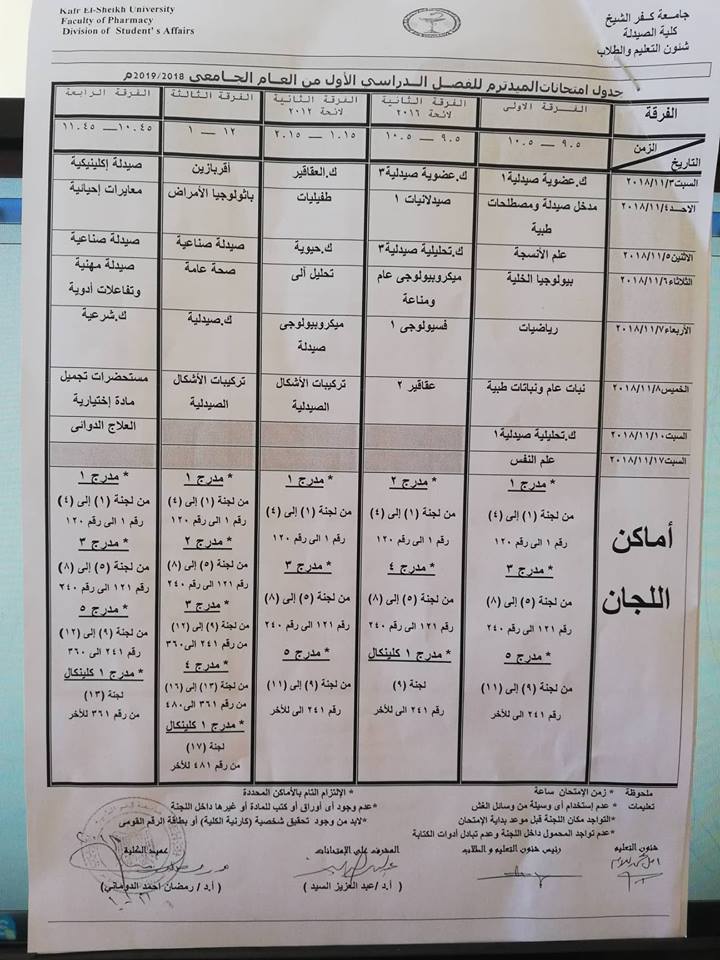 Kafr El-Sheikh University
Faculty of Pharmacy
Division of Student's Affairs
جامعة كفر الشيخ
كلية الصيدلة
شئون التعليم والطلاب
جدول امتحانات الميدترم للفصل الدراسي الأول من العام الجامعي ٢٠١٩/٢٠١٨م
الفرقة
الفرقة الاولى
الفرقة الثانية لائحة ٢٠١٦
الفرقة الثانية لائحة ٢٠١٢
الفرقة الثالثة
الفرقة الرابعة
الزمن
التاريخ
٩.٥ — ١٠.٥
٩.٥ — ١٠.٥
١.١٥ — ٢.١٥
١٢ — ١
١٠.٤٥ — ١١.٤٥
السبت ٢٠١٨/١١/٣
ك.عضوية صيدلية١
ك.عضوية صيدلية٣
ك.العقاقير
أقربازين
صيدلة إكلينيكية
الاحد ٢٠١٨/١١/٤
مدخل صيدلة ومصطلحات طبية
صيدلانيات ١
طفيليات
باثولوجيا الأمراض
معايرات إحيائية
الاثنين ٢٠١٨/١١/٥
علم الأنسجة
ك.تحليلية صيدلية٣
ك.حيوية
صيدلة صناعية
صيدلة صناعية
الثلاثاء ٢٠١٨/١١/٦
بيولوجيا الخلية
ميكروبيولوجى عام ومناعة
تحليل ألى
صحة عامة
صيدلة مهنية وتفاعلات أدوية
الأربعاء ٢٠١٨/١١/٧
رياضيات
فسيولوجى ١
ميكروبيولوجى صيدلة
ك.صيدلية
ك.شرعية
الخميس ٢٠١٨/١١/٨
نبات عام ونباتات طبية
عقاقير ٢
تركيبات الأشكال الصيدلية
تركيبات الأشكال الصيدلية
مستحضرات تجميل
مادة إختيارية
السبت ٢٠١٨/١١/١٠
ك.تحليلية صيدلية١
العلاج الدوائى
السبت ٢٠١٨/١١/١٧
علم النفس
أماكن اللجان
* مدرج ١
من لجنة (١) إلى (٤)
رقم ١ الى رقم ١٢٠
* مدرج ٣
من لجنة (٥) إلى (٨)
رقم ١٢١ الى رقم ٢٤٠
* مدرج ٥
من لجنة (٩) إلى (١١)
رقم ٢٤١ الى للأخر
* مدرج ٢
من لجنة (١) إلى (٤)
رقم ١ الى رقم ١٢٠
* مدرج ٤
من لجنة (٥) إلى (٨)
رقم ١٢١ الى رقم ٢٤٠
* مدرج ١ كلينكال
لجنة (٩)
من رقم ٢٤١ الى للأخر
* مدرج ١
من لجنة (١) إلى (٤)
رقم ١ الى رقم ١٢٠
* مدرج ٣
من لجنة (٥) إلى (٨)
رقم ١٢١ الى رقم ٢٤٠
* مدرج ٥
من لجنة (٩) إلى (١١)
رقم ٢٤١ الى للأخر
* مدرج ١
من لجنة (١) إلى (٤)
رقم ١ الى رقم ١٢٠
* مدرج ٢
من لجنة (٥) إلى (٨)
رقم ١٢١ الى رقم ٢٤٠
* مدرج ٣
من لجنة (٩) إلى (١٢)
من رقم ٢٤١ الى ٣٦٠
* مدرج ٤
من لجنة (١٣) إلى (١٦)
من رقم ٣٦١ الى ٤٨٠
* مدرج ١ كلينكال
لجنة (١٧)
من رقم ٤٨١ للأخر
* مدرج ١
من لجنة (١) إلى (٤)
رقم ١ الى رقم ١٢٠
* مدرج ٣
من لجنة (٥) إلى (٨)
رقم ١٢١ الى رقم ٢٤٠
* مدرج ٥
من لجنة (٩) إلى (١٢)
من رقم ٢٤١ الى ٣٦٠
* مدرج ١ كلينكال
لجنة (١٣)
من رقم ٣٦١ للأخر
ملحوظة * زمن الإمتحان ساعة * الإلتزام التام بالأماكن المحددة
تعليمات * عدم إستخدام أى وسيلة من وسائل الغش *عدم وجود أى أوراق أو كتب للمادة أو غيرها داخل اللجنة
*التواجد مكان اللجنة قبل موعد بداية الإمتحان *لابد من وجود تحقيق شخصية (كارنية الكلية) أو بطاقة الرقم القومى
* عدم تواجد المحمول داخل اللجنة وعدم تبادل أدوات الكتابة
شئون التعليم
رئيس شئون التعليم و الطلاب
المشرف على الإمتحانات
عميد الكلية
( أ.د/عبد العزيز السيد )
( أ.د/ رمضان أحمد الدومانى )